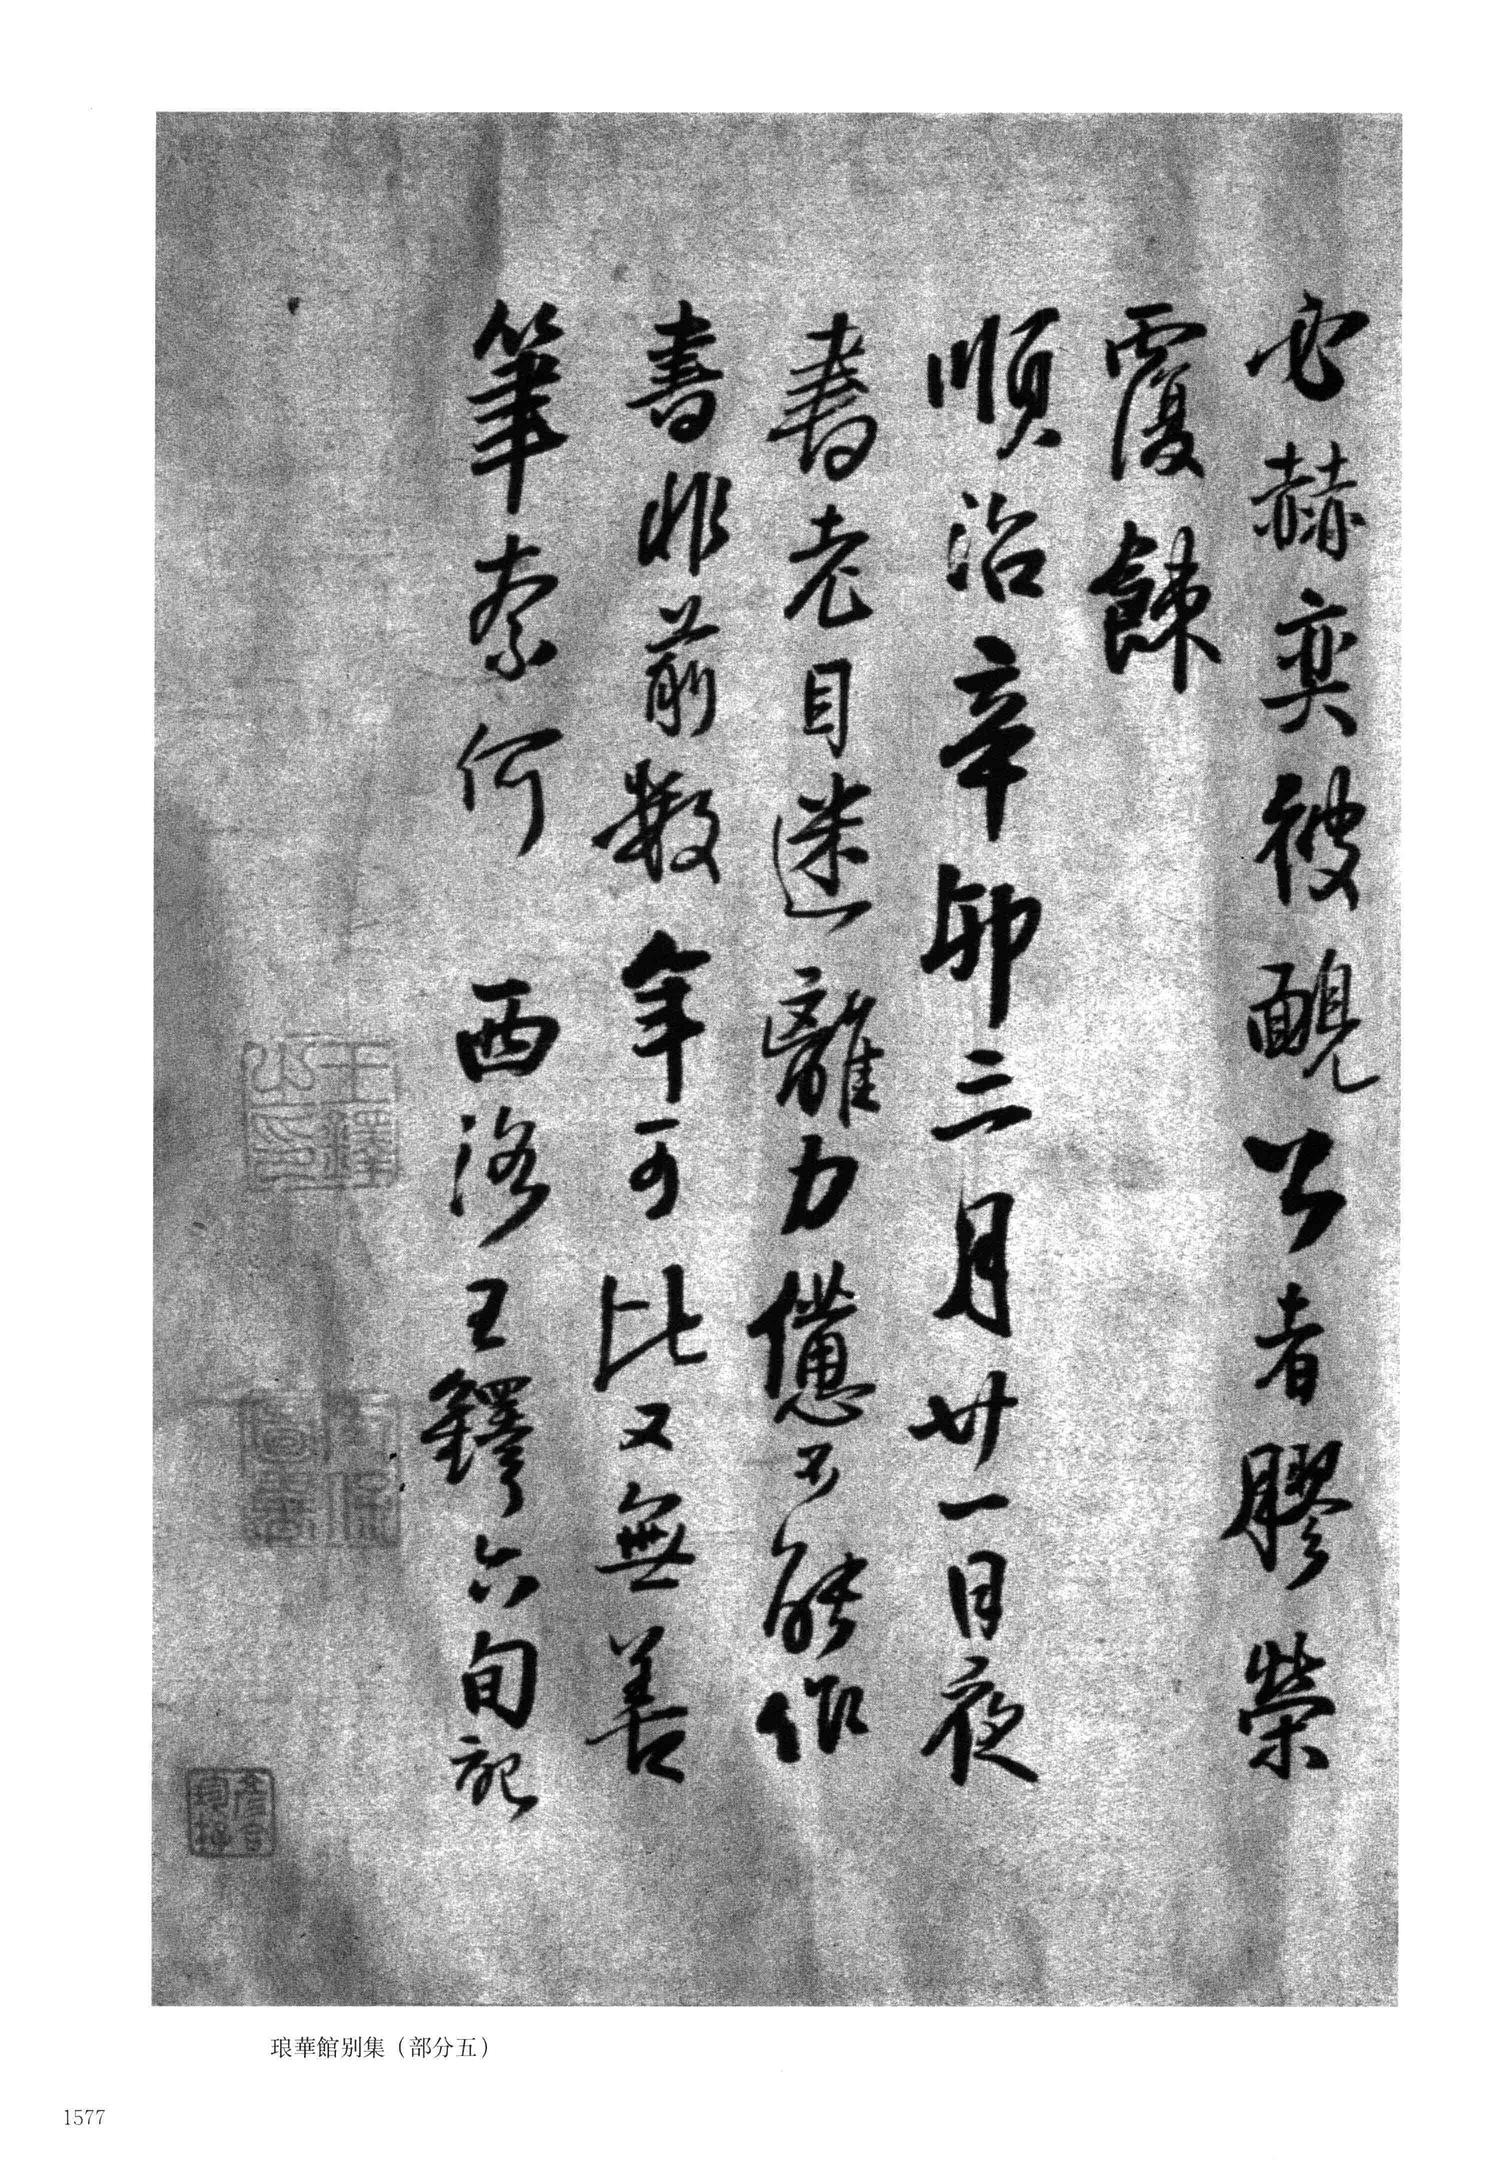 必赫奕彼靦公者膠榮
覆餗
順治辛卯三月廿一日夜
書老目迷離力憊不能作
書非前數年可比又無善
筆奈何 西洛王鐸六旬記
王鐸之印
琅華館別集（部分五）
1577